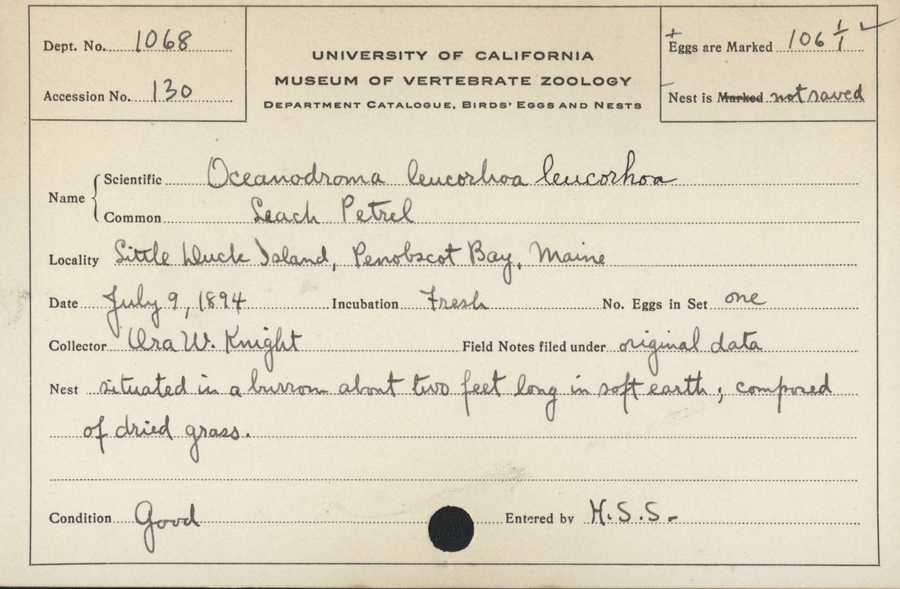 Dept. No. 1068
UNIVERSITY OF CALIFORNIA
MUSEUM OF VERTEBRATE ZOOLOGY
DEPARTMENT CATALOGUE, BIRDS' EGGS AND NESTS
Eggs are Marked 106 1/1 ✓
Accession No. 130
Nest is Marked not saved
Name
Scientific Oceanodroma leucorhoa leucorhoa
Common Leach Petrel
Locality Little Duck Island, Penobscot Bay, Maine
Date July 9, 1894 Incubation Fresh No. Eggs in Set one
Collector Ora W. Knight Field Notes filed under original data
Nest situated in a burrow about two feet long in soft earth; composed
of dried grass.
Condition Good Entered by H.S.S.